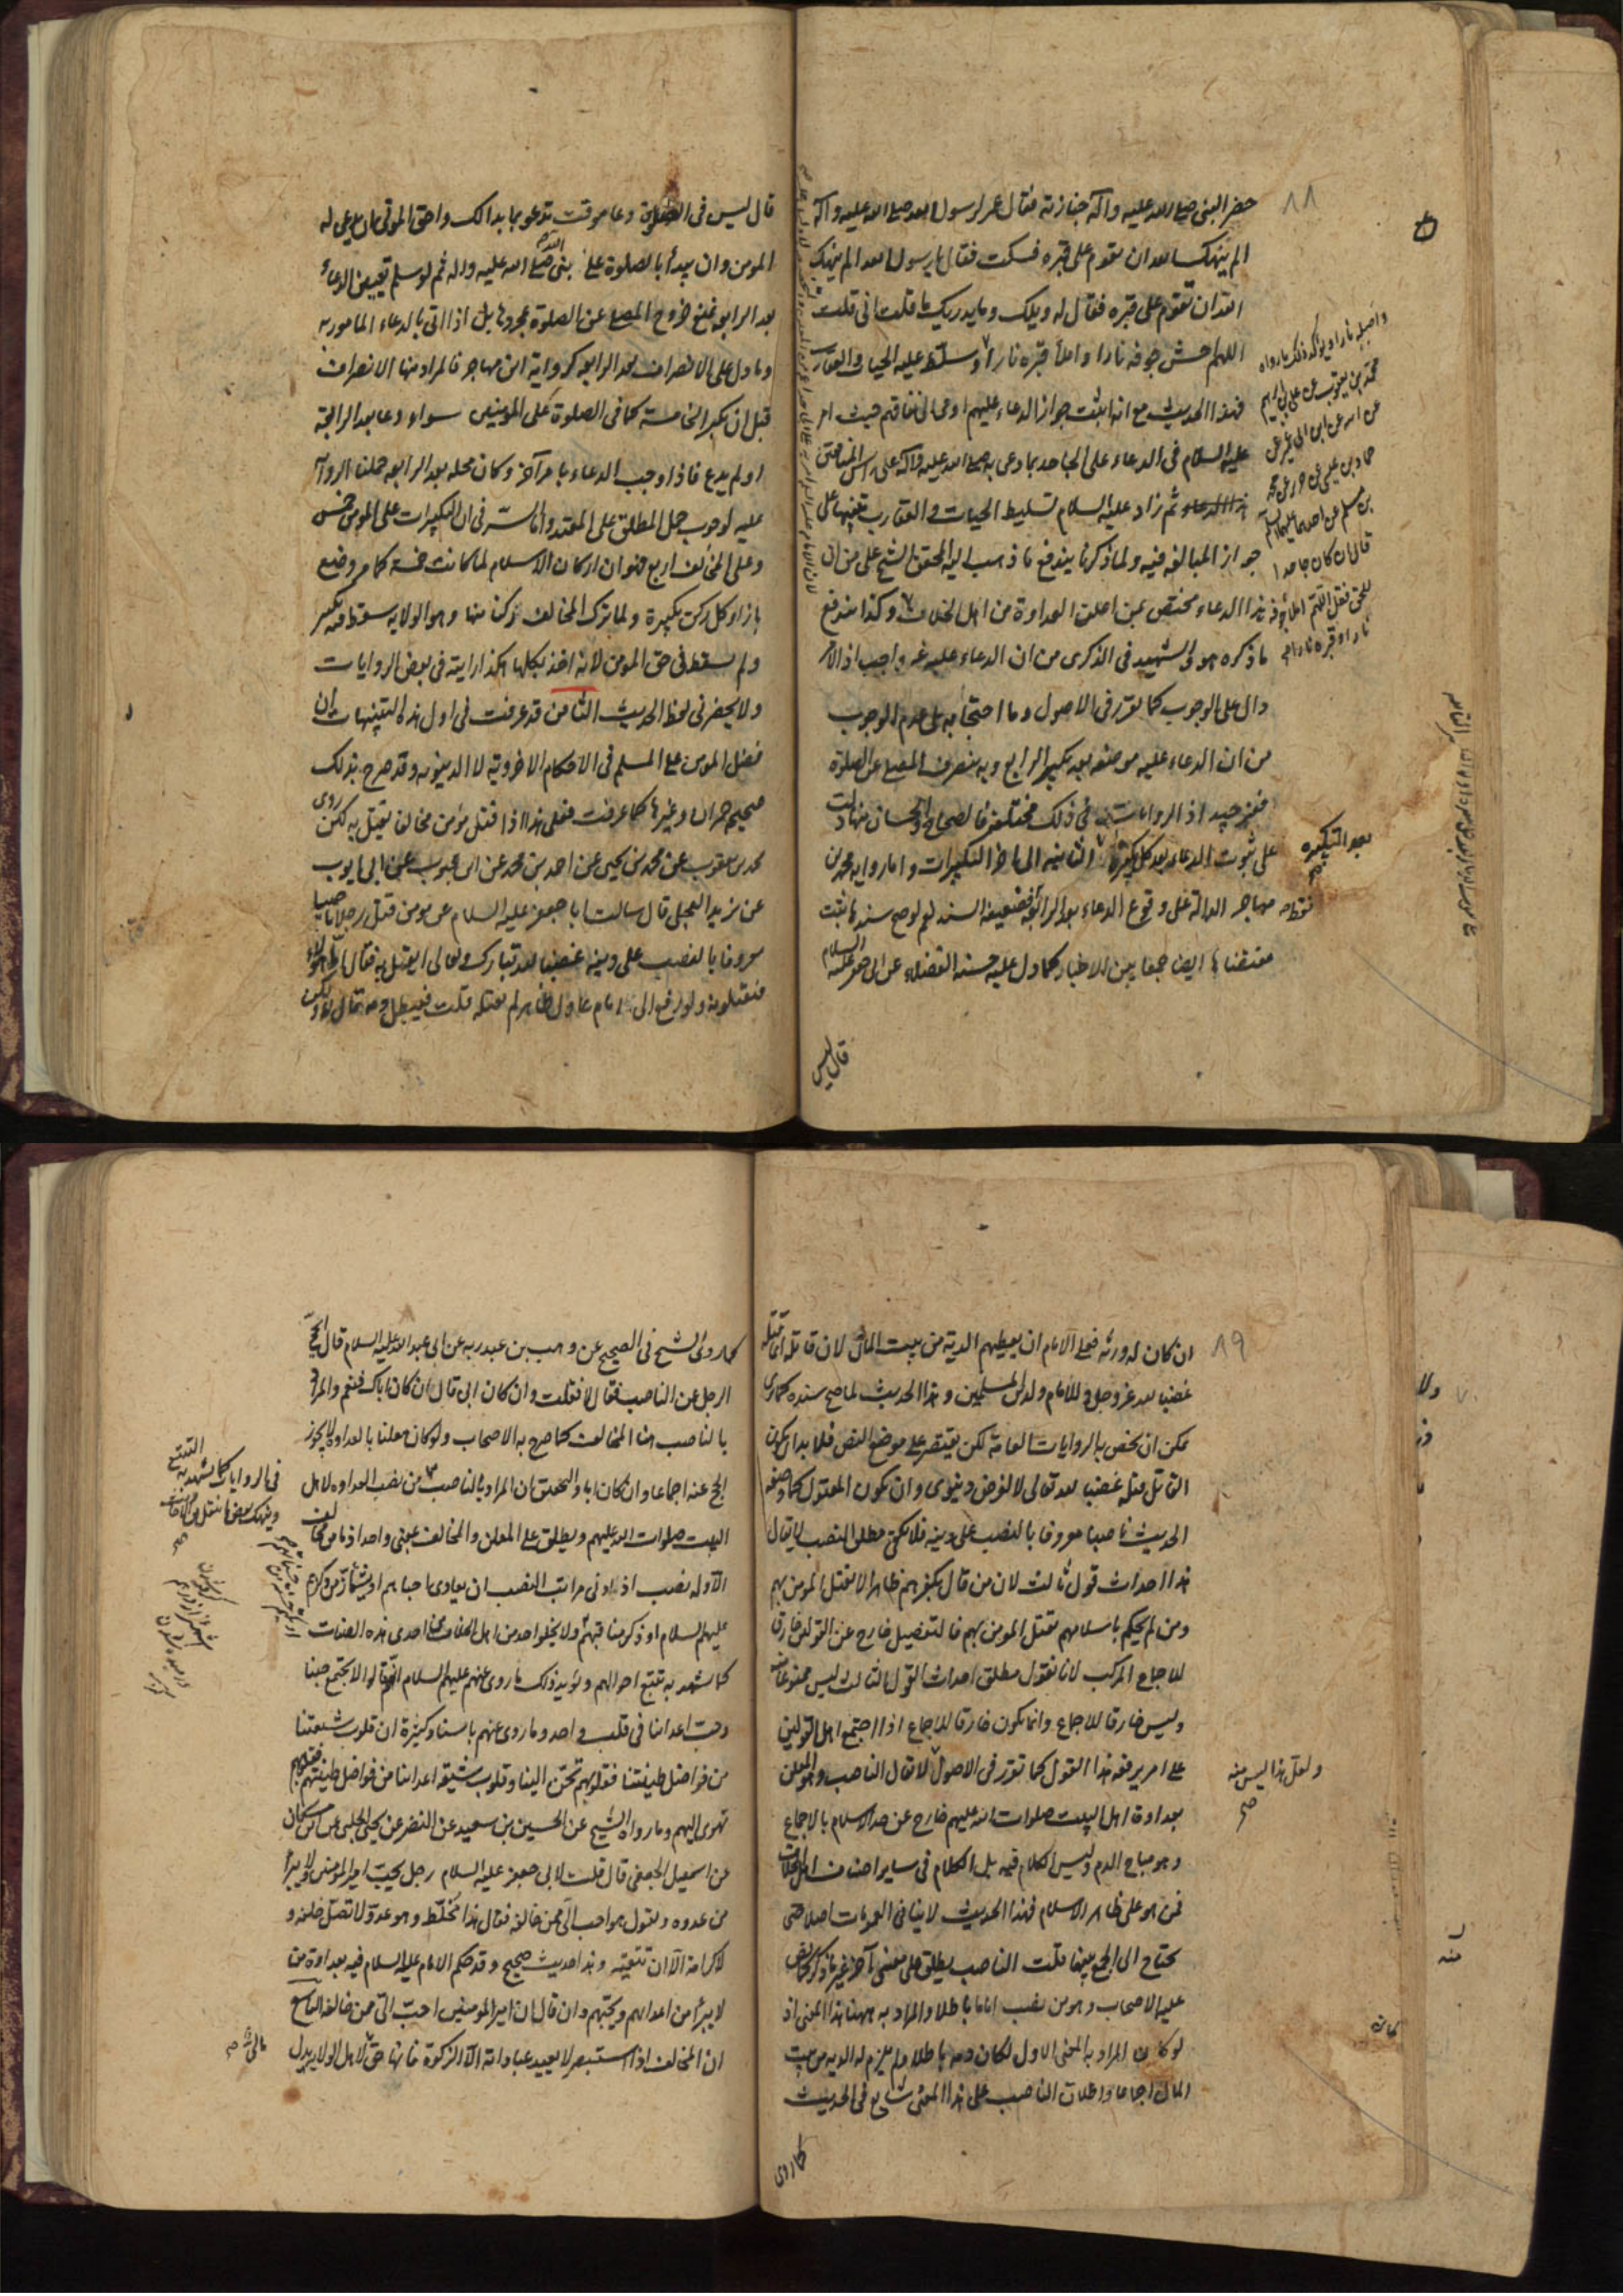 ٨٨
حضر النبی صلی الله علیه وآله جنازته فقال عمر لرسول الله صلی الله علیه وآله
الم ینهک الله ان تقوم علی قبره فسکت فقال یا رسول الله الم ینهک
الله ان تقوم علی قبره فقال له ویلک وما یدریک ما قلت انی قلت
اللهم احش جوفه نارا واملأ قبره نارا وسلط علیه الحیات والعقارب
فهذا الحدیث مع انه اثبت جواز الدعاء علیهم اومی الی نفاقهم حیث امر
علیه السلام فی الدعاء علی الجاحد بما دعی به صلی الله علیه وآله علی راس المنافقین
ثم زاد علیه السلام تسلیط الحیات والعقارب تنبیها علی
جواز المبالغة فیه ولما ذکرنا یندفع ما ذهب الیه المحقق الشیخ علی من ان
هذا الدعاء مختص بمن اعلن العداوة من اهل الخلاف وکذا یندفع
ما ذکره هو والشهید فی الذکری من ان الدعاء علیه غیر واجب اذ الامر
دال علی الوجوب کما تقرر فی الاصول وما احتجا به علی عدم الوجوب
من ان الدعاء علیه موضعه بعد تکبیر الرابع وبه ینصرف المصلی عن الصلوة
فغیر جید اذ الروایات فی ذلک مختلفة فالصحاح والحسان منها دلت
علی ثبوت الدعاء بعد کل تکبیرة الثانیه الی اخر التکبیرات واما روایه محمد بن
مهاجر الدالة علی وقوع الدعاء بعد الرابعة فضعیفة السند نعم لو صح سندها ثبت
مقتضاها ایضا جمعا بین الاخبار کما دل علیه حسنه الفضلاء عن ابی جعفر علیه السلام
قال لیس
واصله نارا ویؤکد ذلک ما رواه
محمد بن یعقوب عن علی بن ابراهیم
عن ابیه عن ابن ابی عمیر عن
حماد بن عیسی عن حریز عن محمد
بن مسلم عن احدهما علیهما السلام
قال ان کان جاحدا
للحق فقل اللهم املأ جوفه
نارا وقبره نارا الخ
بعد التکبیرة
صح
فقط
قال لیس فی الصلوة دعا موقت تدعو بما بدا لک واحق الموتی ان یدعی له
المومن وان یبدأ بالصلوة علی النبی صلی الله علیه واله ثم لو سلم تعیین الدعاء
بعد الرابعة نمنع خروج المصلی عن الصلوة بمجردها بل اذا اتی بالدعاء المامور به
وما دل علی الانصراف بعد الرابعة کروایة ابن مهاجر فالمراد منها الانصراف
قبل ان یکبر الخامسة کما فی الصلوة علی المومنین سواء دعا بعد الرابعة
او لم یدع فاذا وجب الدعاء بامر آخر وکان محله بعد الرابعة حملنا الروایه
علیه لوجوب حمل المطلق علی المقید واما السر فی ان التکبیرات علی المومن خمس
وعلی المخالف اربع فهو ان ارکان الاسلام لما کانت خمسة کما مر وضع
بازاء کل رکن تکبیرة ولما ترک المخالف رکنا منها وهو الولایه سقط منه تکبیر
ولم یسقط فی حق المومن لانه اخذ بکلها هکذا رایته فی بعض الروایات
ولا یحضرنی لفظ الحدیث الثامن قد عرفت فی اول هذه التنبیهات ان
فضل المومن علی المسلم فی الاحکام الاخرویة لا الدنیویه وقد صرح بذلک
صحیح حمران وغیرها کما عرفت فعلی هذا اذا قتل مؤمن مخالفا یقتل به لکن روی
محمد بن یعقوب عن محمد بن یحیی عن احمد بن محمد عن ابن محبوب عن ابی ایوب
عن برید العجلی قال سالت ابا جعفر علیه السلام عن مومن قتل رجلا ناصبا
معروفا بالنصب علی دینه غضبا لله تبارک وتعالی ایقتل به فقال اما هؤلاء
فیقتلونه ولو رفع الی امام عادل ظاهر لم یقتله قلت فیبطل دمه قال لا ولکن
٨٩
ان کان له ورثه فعلی الامام ان یعطیهم الدیة من بیت المال لان قاتله انما قتله
غضبا لله عز وجل وللامام ولدین المسلمین وهذا الحدیث لما صح سنده کما تری
یمکن ان یخص به الروایات العامة لکن یقتصر علی موضع النص فلا بد ان یکون
القاتل قتله غضبا لله تعالی لا لغرض دنیوی وان یکون المقتول کما وصفه
الحدیث ناصبا معروفا بالنصب علی دینه فلا یکفی مطلق النصب لا یقال
هذا احداث قول ثالث لان من قال بکفرهم ظاهرا لا یقتل المومن بهم
ومن لم یحکم باسلامهم یقتل المومن بهم فالتفصیل خارج عن القولین خارق
للاجماع المرکب لانا نقول مطلق احداث القول الثالث لیس ممنوعا منه
ولیس خارقا للاجماع وانما یکون خارقا للاجماع اذا اجتمع اهل القولین
علی امر یرفعه هذا القول کما تقرر فی الاصول لا یقال الناصب وهو المعلن
بعداوة اهل البیت صلوات الله علیهم خارج عن حد الاسلام بالاجماع
وهو مباح الدم ولیس الکلام فیه بل الکلام فی سایر اصناف اهل الخلاف
ممن هو علی ظاهر الاسلام فهذا الحدیث لا ینافی العمومات اصلا حتی
یحتاج الی الجمع بینها قلت الناصب یطلق علی معنی آخر غیر ما ذکر کما نص
علیه الاصحاب وهو من نصب اماما باطلا والمراد به ههنا هذا المعنی اذ
لو کان المراد به المعنی الاول لکان دمه باطلا ولم یلزم له الدیه من بیت
المال اجماعا واطلاق الناصب علی هذا المعنی شایع فی الحدیث
کما روی
ولعل هذا لیس منه
صح
کما روی الشیخ فی الصحیح عن وهب بن عبد ربه عن ابی عبد الله علیه السلام قال ایحج
الرجل عن الناصب فقال لا فقلت وان کان ابی قال ان کان اباک فنعم والمراد
بالناصب هنا المخالف کما صرح به الاصحاب ولو کان معلنا بالعداوه لا یجوز
الحج عنه اجماعا وان کان ابا والتحقیق ان المراد بالناصب من نصب العداوه لاهل
البیت صلوات الله علیهم ویطلق علی المعلن والمخالف بمعنی واحد اذ ما من مخالف
الا وله نصب اذ ادنی مراتب النصب ان یعادی احبابهم او یشمأز من ذکرهم
علیهم السلام او ذکر مناقبهم ولا یخلو احد من اهل الخلاف عن احدی هذه الصفات
کما یشهد به تتبع احوالهم ویؤید ذلک ما روی عنهم علیهم السلام انهم قالوا لا یجتمع حبنا
وحب اعدائنا فی قلب واحد وما روی عنهم باسناد کثیرة ان قلوب شیعتنا
من فواضل طینتنا فقلوبهم تحن الینا وقلوب شیعة اعدائنا من فواضل طینتهم فقلوبهم
تهوی الیهم وما رواه الشیخ عن الحسین بن سعید عن النضر عن یحیی الحلبی عن ابن مسکان
عن اسمعیل الجعفی قال قلت لابی جعفر علیه السلام رجل یحب امیر المؤمنین ولا یبرأ
من عدوه ویقول هو احب الی ممن خالفه فقال هذا مخلط وهو عدو لا تصل خلفه و
لا کرامة الا ان تتقیه وهذا حدیث صحیح وقد حکم الامام علیه السلام فیه بعداوة من
لا یبرأ من اعدائهم ویحبهم وان قال ان امیر المومنین احب الی ممن خالفه التاسع
ان المخالف اذا استبصر لا یعید عباداته الا الزکوة فانها حق لاهل الولایه یدل
التتبع
فی الروایات کما یشهد به
صح